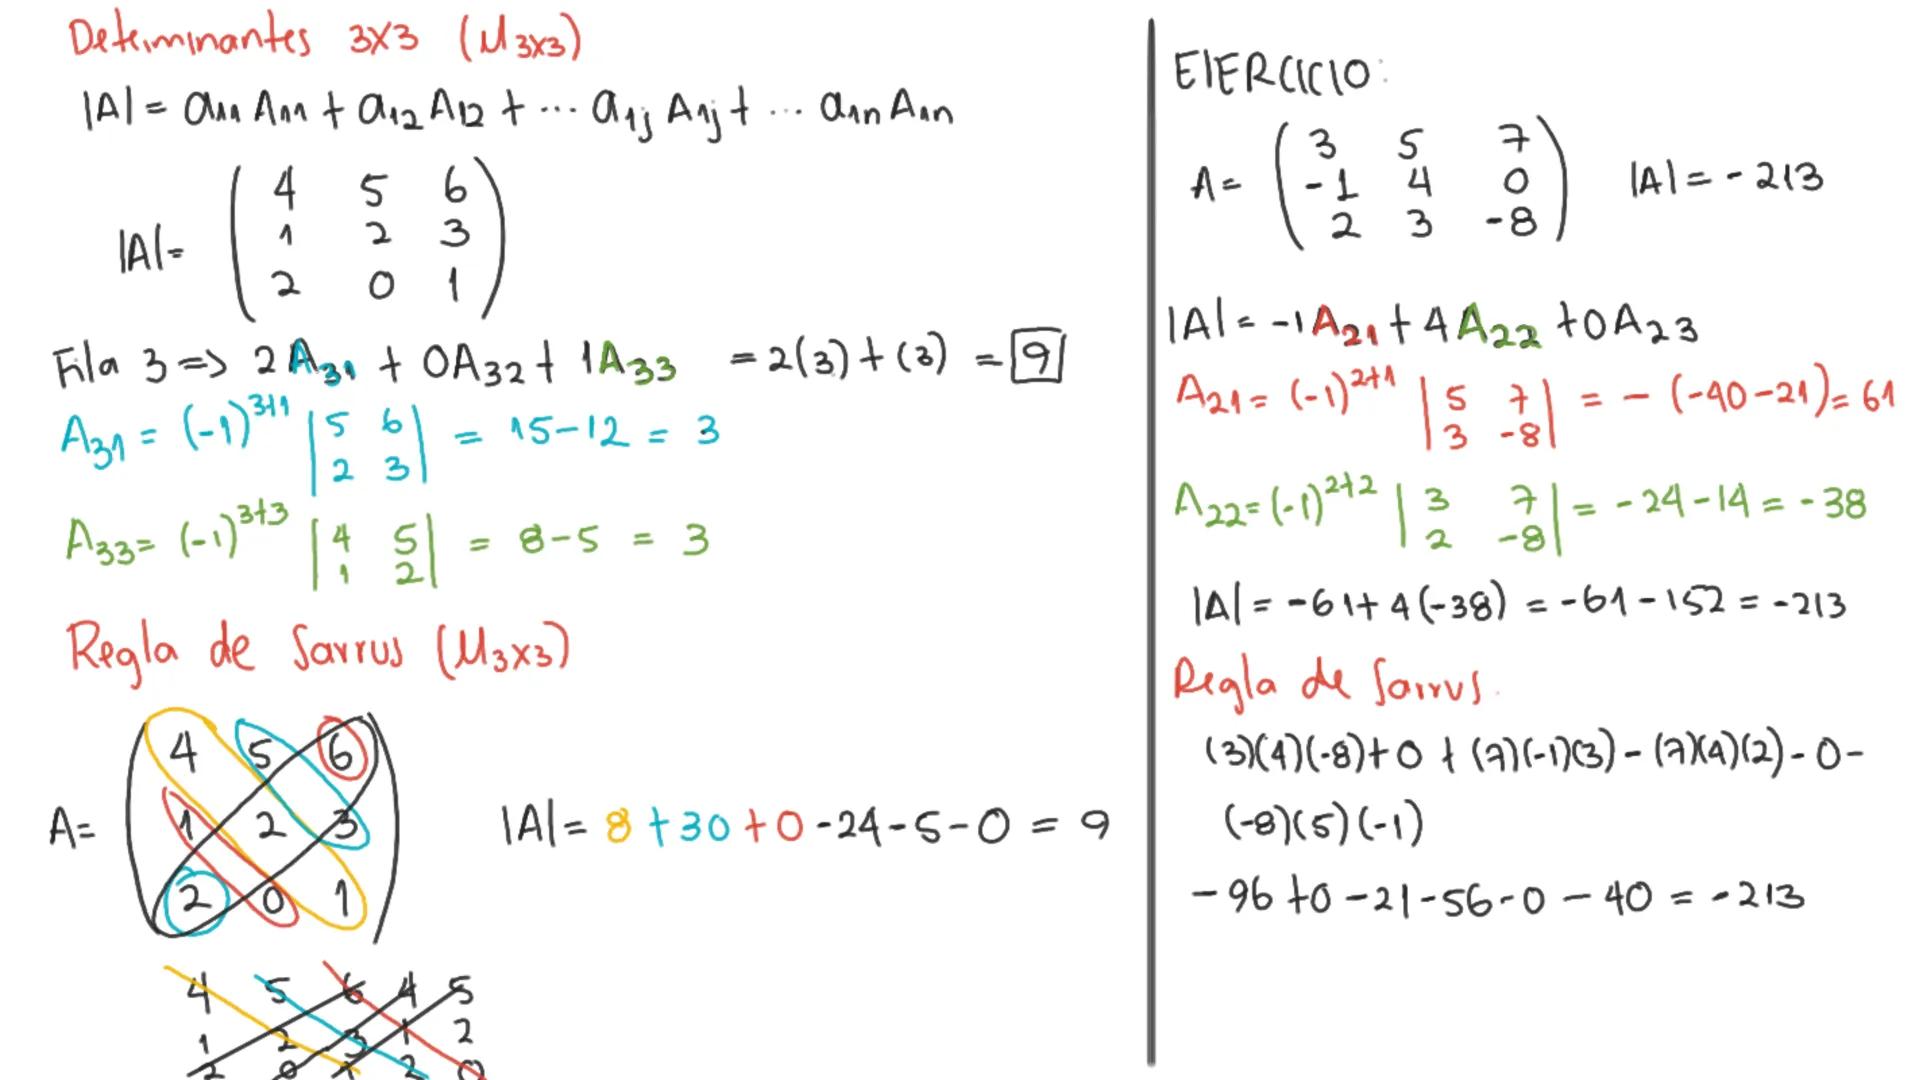 Determinantes 3x3 (M3x3)
|A| = a11 A11 + a12 A12 + ... a1j A1j + ... a1n A1n
|A| =
4 5 6
1 2 3
2 0 1
Fila 3 => 2A31 + 0A32 + 1A33 = 2(3) + (3) = 9
A31 = (-1)^3+1 |5 6| = 15-12 = 3
2 3
A33 = (-1)^3+3 |4 5| = 8-5 = 3
1 2
Regla de Sarrus (M3x3)
4 5 6
A= 1 2 3 |A| = 8 +30 +0 -24 -5 -0 = 9
2 0 1
4 5 6 4 5
1 2 3 1 2
2 0 1 2 0
EJERCICIO:
3 5 7
A= -1 4 0 |A| = -213
2 3 -8
|A| = -1A21 + 4A22 + 0A23
A21 = (-1)^2+1 |5 7| = - (-40-21) = 61
3 -8
A22 = (-1)^2+2 |3 7| = -24-14 = -38
2 -8
|A| = -61 + 4(-38) = -61 - 152 = -213
Regla de Sarrus.
(3)(4)(-8) + 0 + (7)(-1)(3) - (7)(4)(2) - 0 -
(-8)(5)(-1)
-96 +0 -21 -56 -0 -40 = -213